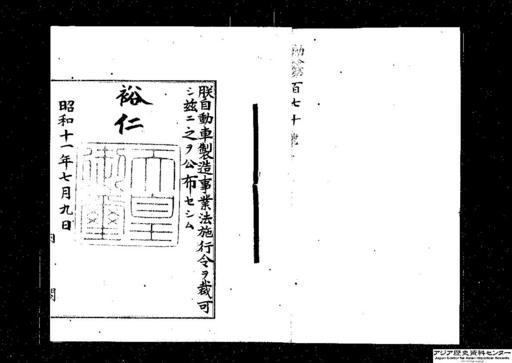 勅令第百七十號
朕自動車製造事業法施行令ヲ裁可
シ玆ニ之ヲ公布セシム
裕仁
天皇御璽
昭和十一年七月九日
内閣
アジア歴史資料センター
Japan Center for Asian Historical Records